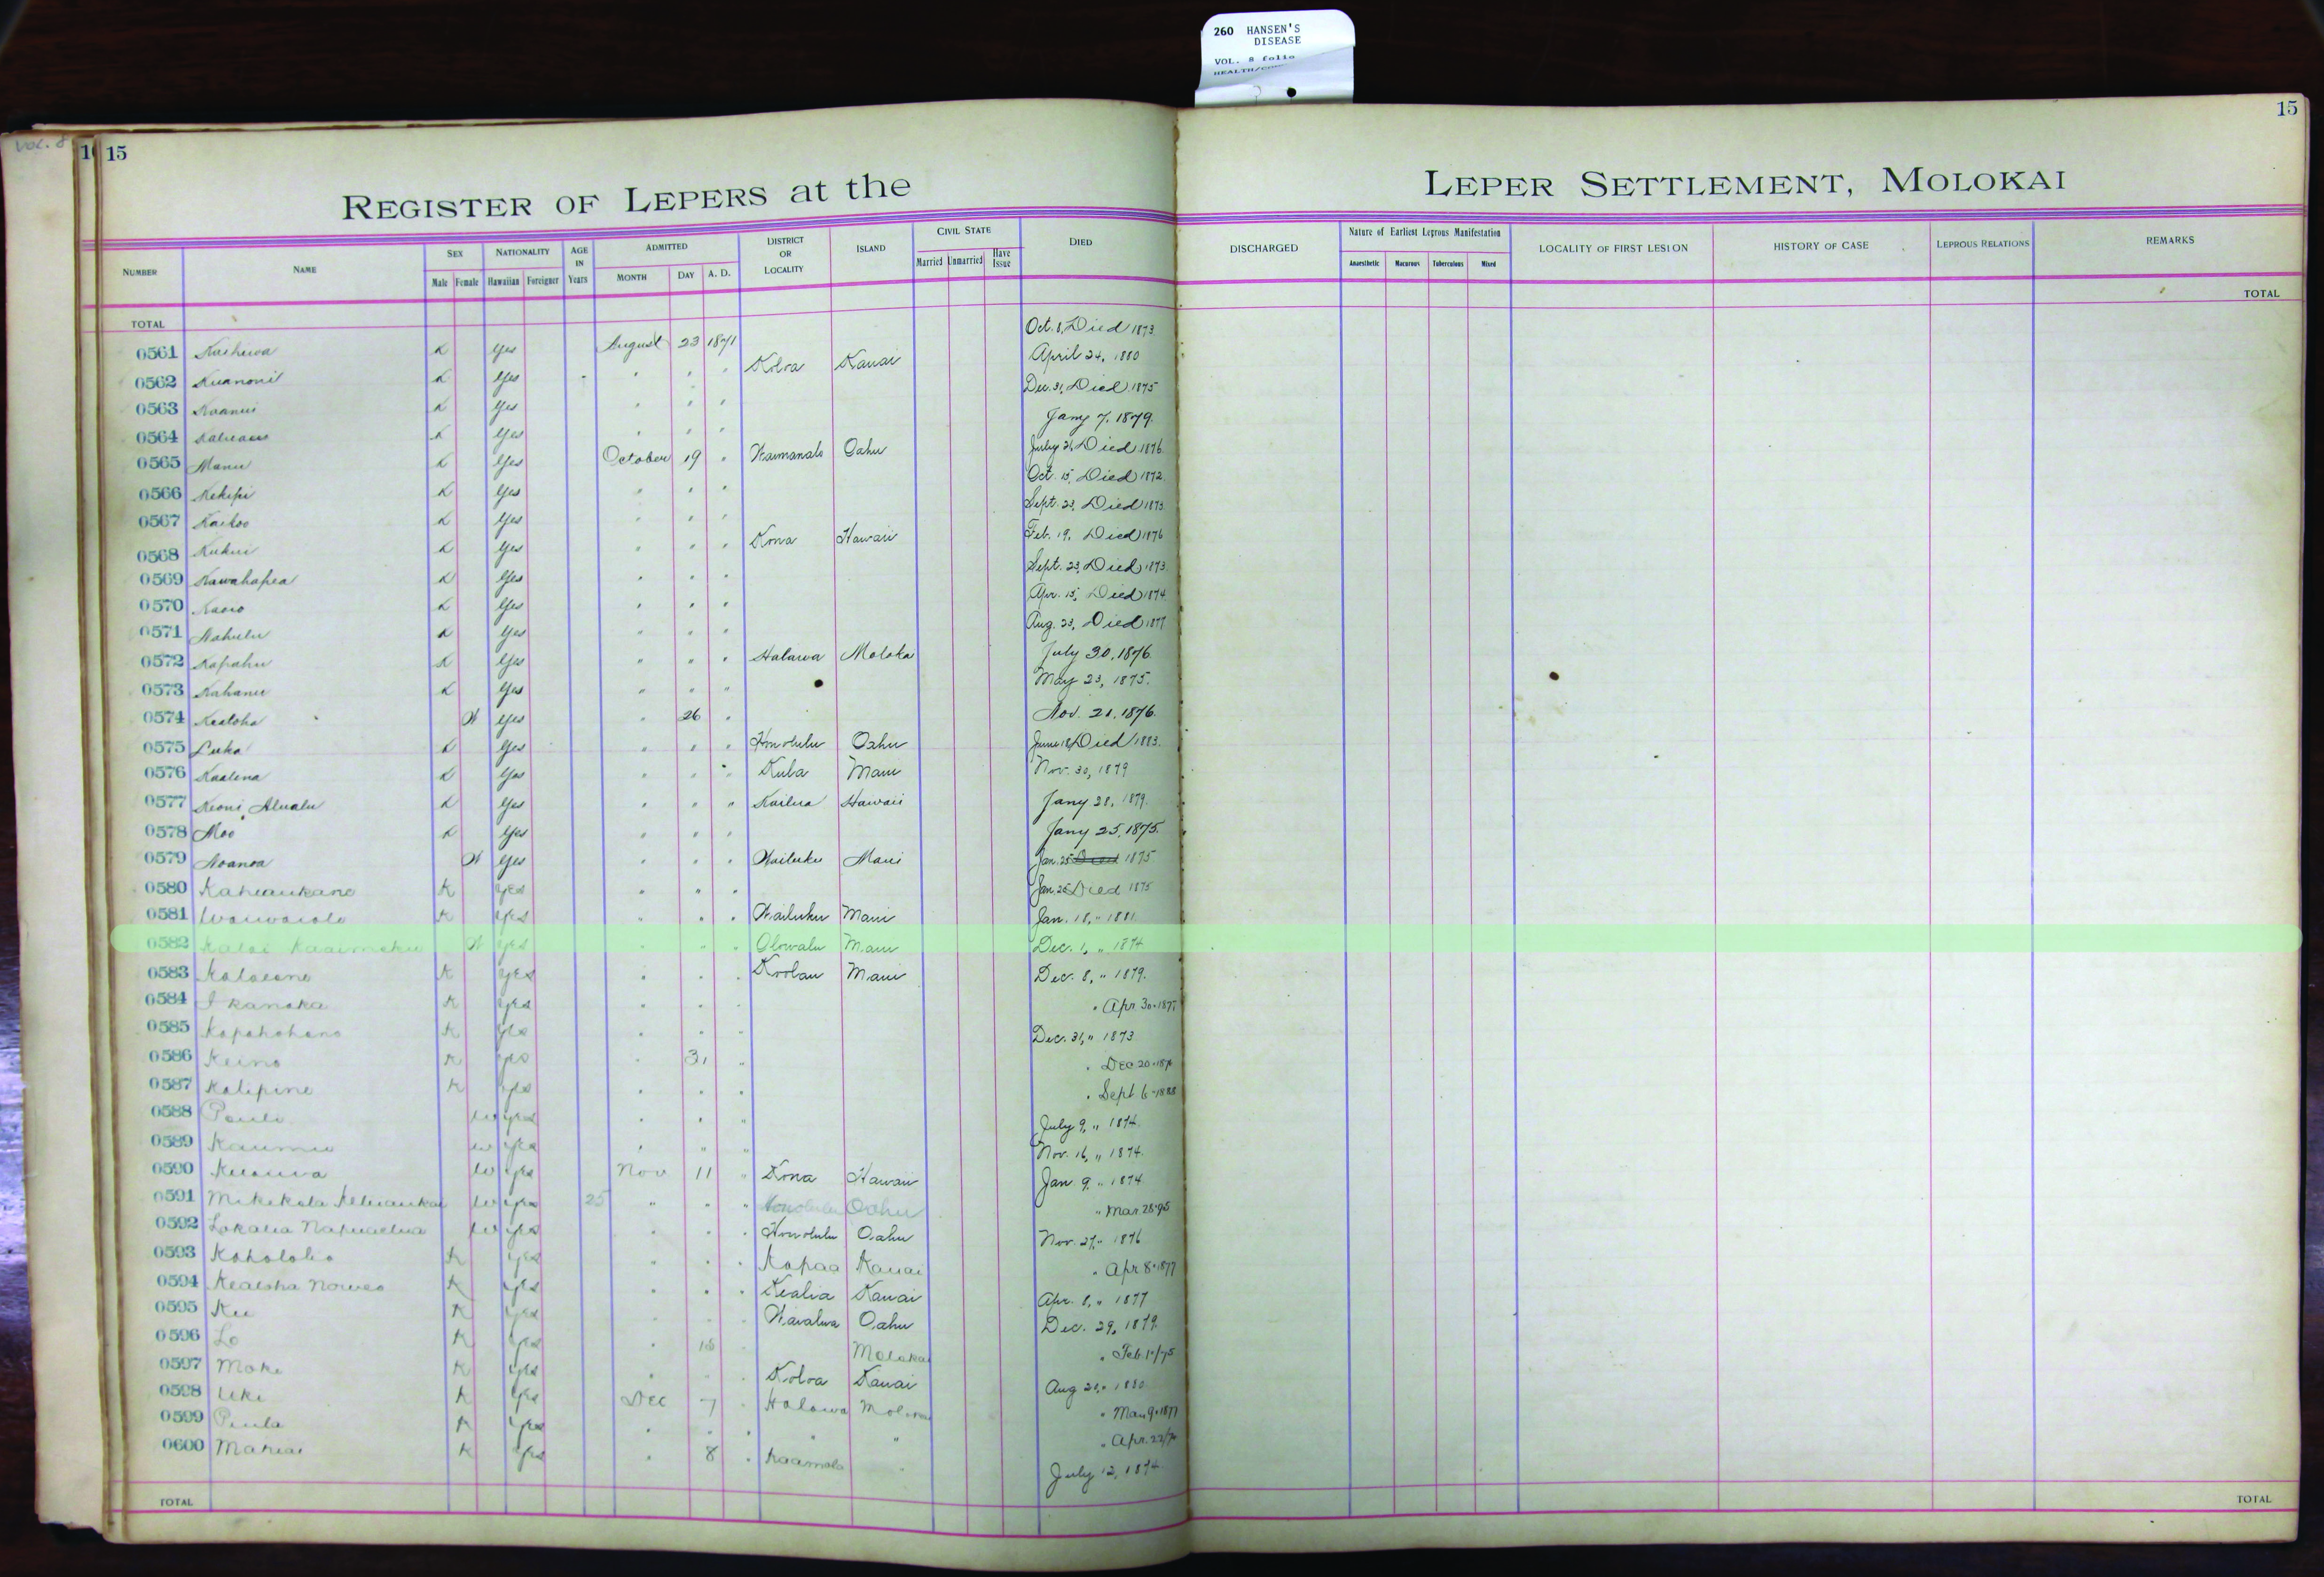 260 HANSEN'S
DISEASE
VOL. 8 folio
VOL. 8
15
15
REGISTER OF LEPERS at the LEPER SETTLEMENT, MOLOKAI
NUMBER NAME SEX Male Female NATIONALITY Hawaiian Foreigner AGE IN Years ADMITTED MONTH DAY A. D. DISTRICT OR LOCALITY ISLAND CIVIL STATE Married Unmarried Have Issue DIED DISCHARGED Nature of Earliest Leprous Manifestation Anaesthetic Macarous Tuberculous Mixed LOCALITY OF FIRST LESION HISTORY OF CASE LEPROUS RELATIONS REMARKS
TOTAL TOTAL
0561 K Yes August 23 1871 Oct. 8, Died 1873
0562 K Yes " " " Koloa Kauai April 24, 1880
0563 K Yes " " " Dec. 31, Died 1875
0564 K Yes " " " Jany 7, 1879
0565 Manu K Yes October 19 " Waimanalo Oahu July 21, Died 1876
0566 Kekipi K Yes " " " Oct. 15, Died 1872
0567 Kaikoo K Yes " " " Sept. 23, Died 1873
0568 Kukui K Yes " " " Kona Hawaii Feb. 19, Died 1876
0569 Kawahapea K Yes " " " Sept. 23, Died 1873
0570 K Yes " " " Apr. 15, Died 1874
0571 Nahulu K Yes " " " Aug. 23, Died 1877
0572 Kapahu K Yes " " " Halawa Moloka July 30, 1876
0573 Kahanu K Yes " " " May 23, 1875.
0574 Kealoha W Yes " 26 " Nov. 21, 1876.
0575 Luka K Yes " " " Honolulu Oahu June 18, Died 1883.
0576 Kaalena K Yes " " " Kula Maui Nov. 30, 1879
0577 Keoni Alualu K Yes " " " Kailua Hawaii Jany 28, 1879
0578 Moo K Yes " " " Jany 25, 1875.
0579 Noanoa W Yes " " " Wailuku Maui Jan. 25 Died 1875
0580 Kaheaukane K Yes " " " Jan. 25 Died 1875
0581 Waiwaiole K Yes " " " Wailuku Maui Jan. 18, " 1881
0582 Kalai Kaaimoku W Yes " " " Olowalu Maui Dec. 1, " 1874
0583 K Yes " " " Koolau Maui Dec. 8, " 1879.
0584 I Kanaka K Yes " " " " Apr 30 - 1877
0585 Kapahohano K Yes " " " Dec. 31, " 1873
0586 Keino K Yes " 31 " " Dec 20
0587 Kalipine K Yes " " " " Sept 6 - 1888
0588 Pauli W Yes " " " July 9, " 1874
0589 Kaumu W Yes " " " Nov. 16, " 1874.
0590 W Yes Nov 11 " Kona Hawaii Jan 9, " 1874
0591 Mikikala W Yes 25 " " " Honolulu Oahu " Mar. 28-95
0592 W Yes " " " Honolulu Oahu Nov. 27, " 1876
0593 Kahololio K Yes " " " Kapaa Kauai " Apr 8 - 1877
0594 Kealoha K Yes " " " Kealia Kauai Apr. 8, " 1877
0595 Ku K Yes " " " Waialua Oahu Dec. 29, 1879
0596 Lo K Yes " 18 " Molokai " Feb 1"/75
0597 Moke K Yes " " " Koloa Kauai Aug 21, " 1880
0598 Uki K Yes Dec 7 " Halawa Molokai " Mar 9 - 1877
0599 Piula K Yes " " " " " " Apr. 22
0600 Mahiai K Yes " 8 " Kaamola " July 12, 1874
TOTAL TOTAL